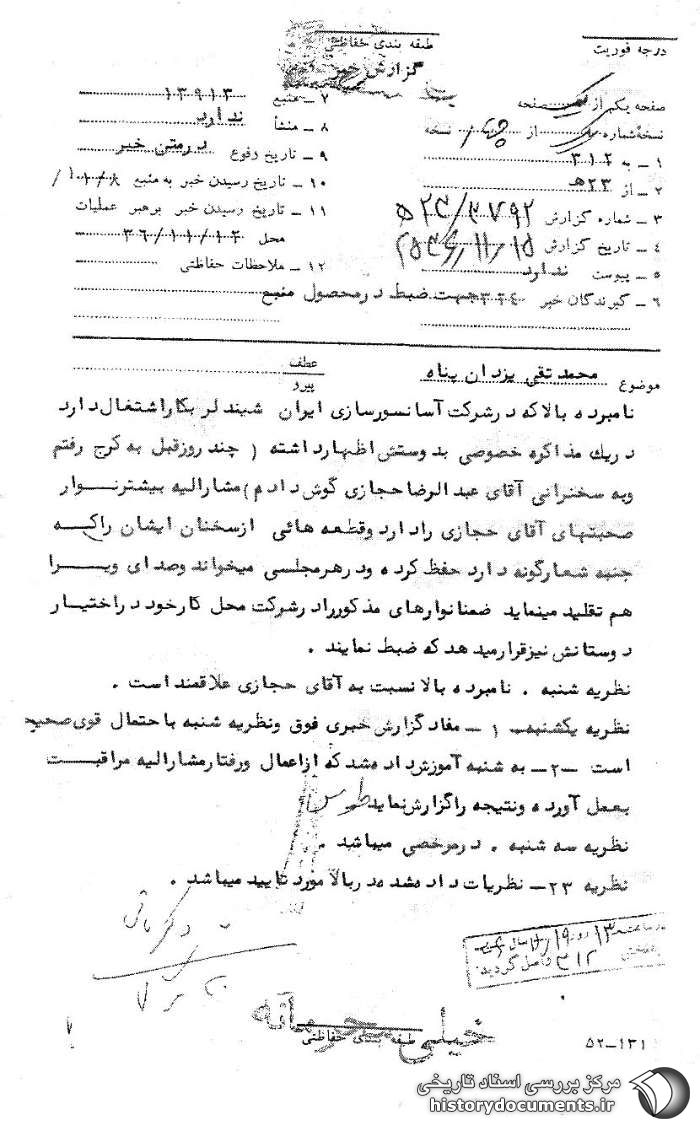 درجه فوریت
طبقه بندی حفاظتی
گزارش خبر
صفحه یکم از یک صفحه
نسخه شماره از چهار نسخه
۱ ــ به ۳۱۲
۲ ــ از ۲۳ هـ
۳ ــ شماره گزارش ۲۳/۳۷۹۲ هـ
۴ ــ تاریخ گزارش ۱۵/۱۱/۲۵۳۶
۵ ــ پیوست ندارد
۶ ــ گیرندگان خبر ۳۳۴ جهت ضبط درمحصول منبع
۷ ــ منبع ۱۳۹۱۳
۸ ــ منشأ ندارد
۹ ــ تاریخ وقوع درمتن خبر
۱۰ ــ تاریخ رسیدن خبر به منبع
۱۱ ــ تاریخ رسیدن خبر برهبر عملیات
محل ۳۶/۱۱/۱۲
۱۲ ــ ملاحظات حفاظتی
موضوع محمدتقی یزدان پناه
عطف
پیرو
نامبرده بالاکه درشرکت آسانسورسازی ایران شیندلر بکاراشتغال دارد
دریك مذاکره خصوصی بدوستش اظهارداشته ( چند روزقبل به کرج رفتم
وبه سخنرانی آقای عبدالرضا حجازی گوش دادم) مشارالیه بیشترنــوار
صحبتهای آقای حجازی رادارد وقطعه هائی ازسخنان ایشان راکــه
جنبه شعارگونه دارد حفظ کرده ودرهرمجلسی میخواند وصدای ویــرا
هم تقلید مینماید ضمنانوارهای مذکوررادرشرکت محل کارخود دراختیار
دوستانش نیزقرارمیدهد که ضبط نمایند .
نظریه شنبه . نامبرده بالانسبت به آقای حجازی علاقمند است .
نظریه یکشنبه ـ ۱ ــ مفادگزارش خبری فوق ونظریه شنبه باحتمال قوی صحیح
است ــ ۲ ــ به شنبه آموزش داده شد که ازاعمال ورفتارمشارالیه مراقبت
بعمل آورده ونتیجه راگزارش نماید
نظریه سه شنبه . درمرخصی میباشد .
نظریه ۲۳ ــ نظریات داده شده دربالا مورد تایید میباشد .
۱۳ روز ۱۹
۳۱۲ واصل گردید
خیلی محرمانه
طبقه بندی حفاظتی
۵۲ــ۱۳۱
مرکز بررسی اسناد تاریخی
historydocuments.ir